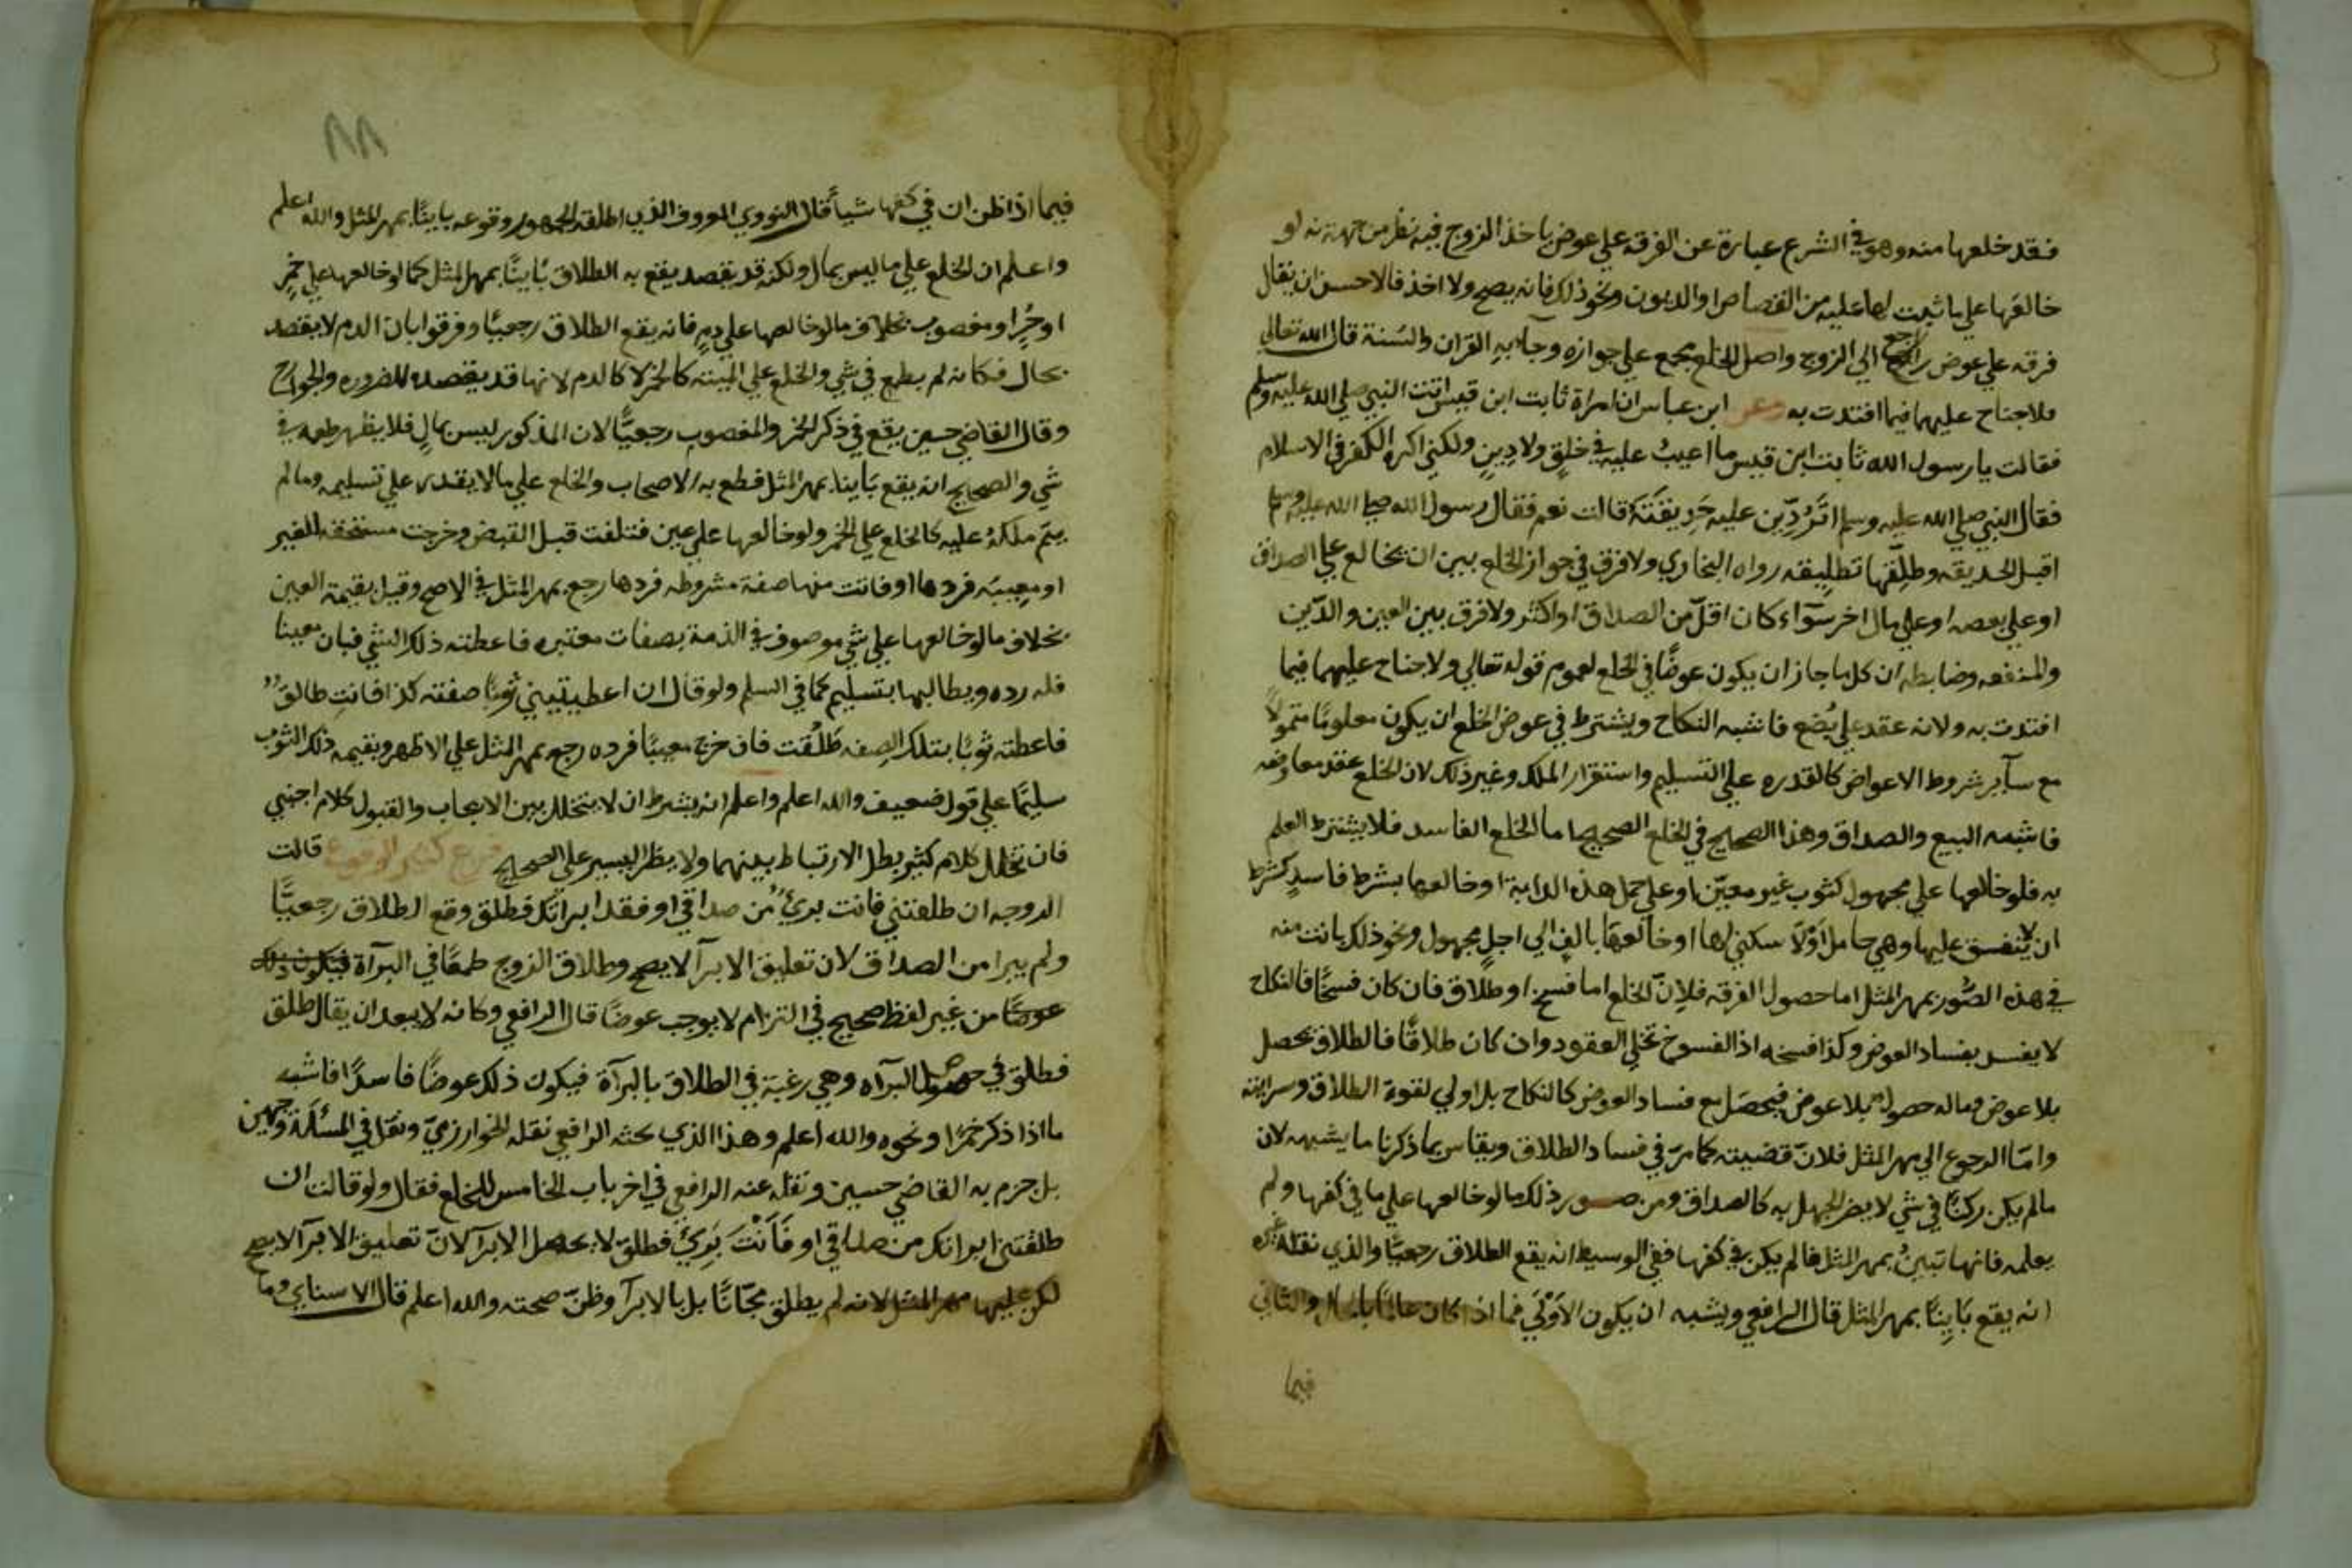 فقد خلعها منه وهو في الشرع عبارة عن الفرقه علي عوض ياخذ الزوج فيه نظر من جهة انه لو
خالعها علي ما ثبت لها عليه من القصاص او الديون ونحو ذلك فانه يصح ولا اخذ فالاحسن ان يقال
فرقه علي عوض راجع الي الزوج واصل الخلع مجمع علي جوازه وجا به القران والسنة قال الله تعالي
فلا جناح عليهما فيما افتدت به وعن ابن عباس ان امراة ثابت ابن قيس اتت النبي صلي الله عليه وسلم
فقالت يا رسول الله ثابت ابن قيس ما اعيب عليه في خلق ولا دين ولكني اكره الكفر في الاسلام
فقال النبي صلي الله عليه وسلم اتردين عليه حديقته قالت نعم فقال رسول الله صلي الله عليه وسلم
اقبل الحديقه وطلقها تطليقه رواه البخاري ولا فرق في جواز الخلع بين ان يخالع علي الصداق
او علي بعضه او علي مال اخر سواء كان اقل من الصداق او اكثر ولا فرق بين العين والدين
والمنفعه وضابطه ان كل ما جاز ان يكون عوضا في الخلع لعموم قوله تعالي ولا جناح عليهما فيما
افتدت به ولانه عقد علي بضع فاشبه النكاح ويشترط في عوض الخلع ان يكون معلوما متمولا
مع ساير شروط الاعواض كالقدره علي التسليم واستقرار الملك وغير ذلك لان الخلع عقد معاوضه
فاشبه البيع والصداق وهذا الصحيح في الخلع الصحيح اما الخلع الفاسد فلا يشترط العلم
به فلو خالعها علي مجهول كثوب غير معين او علي حمل هذه الدابة او خالعها بشرط فاسد كشرط
ان لا ينفق عليها وهي حامل او لا سكني لها او خالعها بالف الي اجل مجهول ونحو ذلك بانت منه
في هذه الصور بمهر المثل اما حصول الفرقه فلان الخلع اما فسخ او طلاق فان كان فسخا فالنكاح
لا يفسد بفساد العوض وكذا فسخه اذ الفسوخ تحلي العقود وان كان طلاقا فالطلاق يحصل
بلا عوض وماله حصول بلا عوض فيحصل مع فساد العوض كالنكاح بل اولي لقوة الطلاق وسرايته
واما الرجوع الي مهر المثل فلان قضيته كما مر في فساد الطلاق ويقاس بما ذكرنا ما يشبهه لان
مالم يكن ركنا في شي لا يضر الجهل به كالصداق ومن صور ذلك ما لو خالعها علي ما في كفها ولم
يعلمه فانها تبين بمهر المثل فالم يكن في كفها ففي الوسيط انه يقع الطلاق رجعيا والذي نقله غيره
انه يقع باينا بمهر المثل قال الرافعي ويشبه ان يكون الاول فيما اذا كان عالما بالحال والثاني
فيما
٨٨
فيما اذا ظن ان في كفها شيأ قال النووي المعروف الذي اطلقه الجمهور وقوعه باينا بمهر المثل والله اعلم
واعلم ان الخلع علي ما ليس بمال ولكنه قد يقصد يقع به الطلاق باينا بمهر المثل كما لو خالعها علي خمر
او حر او مغصوب بخلاف ما لو خالعها علي دم فانه يقع الطلاق رجعيا وفرقوا بان الدم لا يقصد
بحال فكانه لم يطمع في شي والخلع علي الميته كالخمر لا كالدم لانها قد يقصد للضروره وللجوارح
وقال القاضي حسين يقع في ذكر الخمر والمغصوب رجعيا لان المذكور ليس بمال فلا يظهر طمعه في
شي والصحيح انه يقع باينا بمهر المثل قطع به الاصحاب والخلع علي ما لا يقدر علي تسليمه وما لم
يتم ملكه عليه كالخلع علي الخمر ولو خالعها علي عين فتلفت قبل القبض وخرجت مستحقه للغير
او معيبه فردها او فاتت منها صفة مشروطه فردها رجع بمهر المثل في الاصح وقيل بقيمة العين
بخلاف ما لو خالعها علي شي موصوف في الذمة بصفات معتبره فاعطته ذلك الشي فبان معيبا
فله رده ويطالبها بتسليم كما في السلم ولو قال ان اعطيتيني ثوبا صفته كذا فانت طالق
فاعطته ثوبا بتلك الصفه طلقت فان خرج معيبا فرده رجع بمهر المثل علي الاظهر وبقيمه ذلك الثوب
سليما علي قول ضعيف والله اعلم واعلم انه يشرط ان لا يتخلل بين الايجاب والقبول كلام اجنبي
فان تخلل كلام كثير بطل الارتباط بينهما ولا يظر اليسير علي الصحيح فرع كثير الوقوع قالت
الزوجه ان طلقتني فانت بريء من صداقي او فقد ابراتك فطلق وقع الطلاق رجعيا
ولم يبرا من الصداق لان تعليق الابرآ لا يصح وطلاق الزوج طمعا في البرآة فيكون ذلك
عوضا من غير لفظ صحيح في التزام لا يوجب عوضا قال الرافعي وكانه لا يبعد ان يقال طلق
فطلق في حصول البرآه وهي رغبة في الطلاق بالبرآة فيكون ذلك عوضا فاسدا فاشبه
ما اذا ذكر خمرا ونحوه والله اعلم وهذا الذي بحثه الرافعي نقله الخوارزمي ونقل في المسألة وجهين
بل جزم به القاضي حسين ونقله عنه الرافعي في اخر باب الخامس للخلع فقال ولو قالت ان
طلقتني ابراتك من صداقي او فانت بريء فطلق لا يحصل الابرآ لان تعليق الابرآ لا يصح
لكن عليها مهر المثل لانه لم يطلق مجانا بل بالابرآ وظن صحته والله اعلم قال الاسناي وما